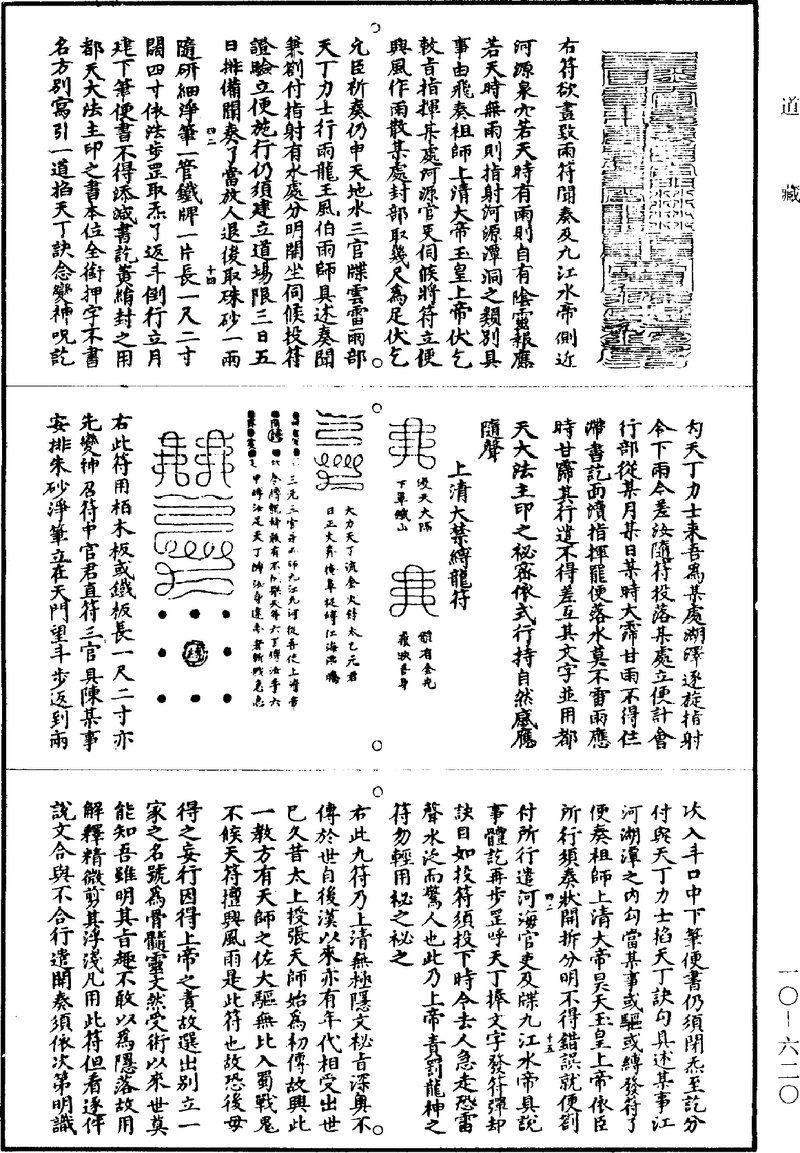 道藏
右符欲盡致兩符聞奏及九江水帝側近
河源泉穴若天時有雨則自有陰靈報應
若天時無雨則指射河源潭洞之類別具
事由飛奏祖師上清大帝玉皇上帝伏乞
敕旨指揮某處河源官吏伺候將符立便
興風作雨散某處封部取幾尺為足伏乞
允臣祈奏仍申天地水三官牒雲雷雨部
天丁力士行雨龍王風伯雨師具述奏聞
兼劄付指射有水處分明閑坐伺候投符
證驗立便施行仍須建立道場限三日五
日排備聞奏了當放人退後取硃砂一兩
四二
十四
隨研細淨筆一管鐵牌一片長一尺二寸
闊四寸依法步罡取炁了返斗倒行立月
建下筆便書不得添減書訖黃絹封之用
都天大法主印之書本位全銜押字不書
名方別寫引一道掐天丁訣念變神呪訖
勾天丁力士来吾為某處湖澤逐旋指射
令下雨令差汝隨符投落某處立便計會
行部從某月某日某時大霈甘雨不得住
滯書訖面瀆指揮罷便落水莫不雷雨應
時甘霈其行遣不得差互其文字並用都
天大法主印之祕密依式行持自然感應
隨聲
上清大禁縛龍符
漫天大陣
下單鐵山
體有金光
覆映吾身
大力天丁流金火鈴太乙元君
右此符用栢木板或鐵板長一尺二寸亦
先變神召符中官君直符三官具陳某事
安排朱砂淨筆立在天門望斗步返到兩
次入斗口中下筆便書仍須閉炁至訖分
付與天丁力士掐天丁訣勾具述某事江
河湖潭之内勾當某事或驅或縛發符了
便奏祖師上清大帝昊天玉皇上帝依臣
所行須奏狀開拆分明不得錯誤就便劄
四二
十五
付所行遣河海官吏及牒九江水帝具說
事體訖再步罡呼天丁捧文字發符彈却
訣曰如投符須投下時令去人急走恐雷
聲水泛而驚人也此乃上帝責罰龍神之
符勿輕用祕之祕之
右此九符乃上清無極隱文秘旨深奧不
傳於世自後漢以來亦有年代相受出世
已久昔太上授張天師始為初傳故興此
一教方有天師之佐大驅無比入蜀戰鬼
不候天符擅興風雨是此符也故恐後毋
得之妄行因得上帝之責故選出別立一
家之名號為骨髓靈文然受術以來世莫
能知吾雖明其旨趣不敢以為隱落故用
解釋精微剪其浮淺凡用此符但看逐件
說文合與不合行遣聞奏須依次第明識
一〇—六二〇